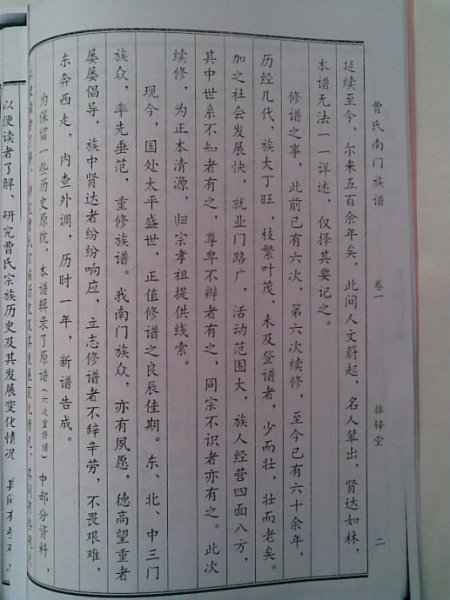 曹氏南门族谱 卷一 振铎堂 二
延续至今，尔来五百余年矣，此间人文蔚起，名人辈出，贤达如林，
本谱无法一一详述，仅择其要记之。
修谱之事，此前已有六次，第六次续修，至今已有六十余年，
历经几代，族大丁旺，枝繁叶茂，未及登谱者，少而壮，壮而老矣。
加之社会发展快，就业门路广，活动范围大，族人经营四面八方，
其中世系不知者有之，尊卑不辩者有之，同宗不识者亦有之。此次
续修，为正本清源，归宗孝祖提供线索。
现今，国处太平盛世，正值修谱之良辰佳期。东、北、中三门
族众，率先垂范，重修族谱。我南门族众，亦有夙愿，德高望重者
屡屡倡导，族中贤达者纷纷响应，立志修谱者不辞辛劳，不畏艰难，
东奔西走，内查外调，历时一年，新谱告成。
为保留一些历史原貌，本谱辑录了原谱（六次重修谱）中部分资料，
以便读者了解、研究曹氏宗族历史及其发展变化情况